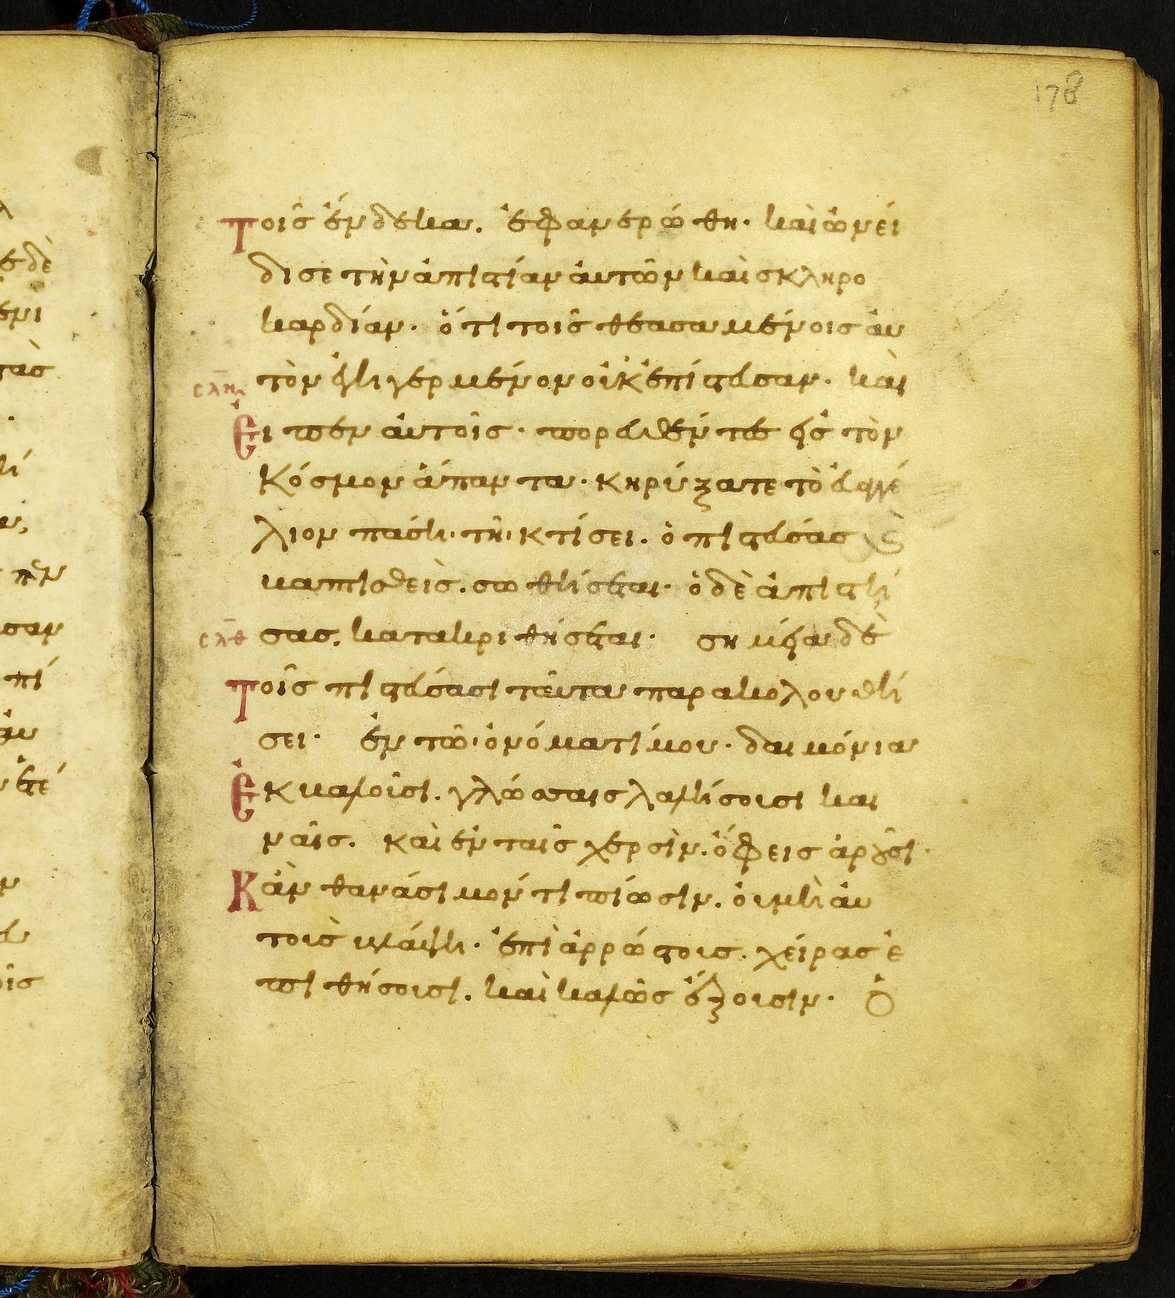 178
τοῖς ἕνδεκα. ἐφανερώθη· καὶ ὠνεί
δισε τὴν ἀπιστίαν ἀυτῶν καὶ σκληρο
καρδίαν· ὅτι τοῖς θεασαμένοις ἀυ
τὸν ἐγηγερμένον οὐκ ἐπίστευσαν· καὶ
εἶπεν ἀυτοῖς· πορευθέντες εἰς τὸν
κόσμον ἅπαντα· κηρύξατε τὸ ἐυαγγέ
λιον πάσῃ τῇ κτίσει. ὁ πιστεύσας
καὶ βαπτισθεὶς. σωθήσεται· ὁ δὲ ἀπιστή
σλθ σας. κατακριθήσεται· σημεῖα δὲ
τοῖς πιστεύσασι ταῦτα παρακολουθή
σει· ἐν τῶ ὀνόματί μου· δαιμόνια
ἐκβαλοῦσι. γλώσσαις λαλήσουσι και
ναῖς. καὶ ἐν ταῖς χερσὶν. ὄφεις ἀροῦσι·
κἂν θανάσιμόν τι πίωσιν. οὐ μὴ ἀυ
τοὺς βλάψῃ· ἐπὶ ἀρρώστους. χεῖρας ἐ
πιθήσουσι. καὶ καλῶς ἕξουσιν· ὁ